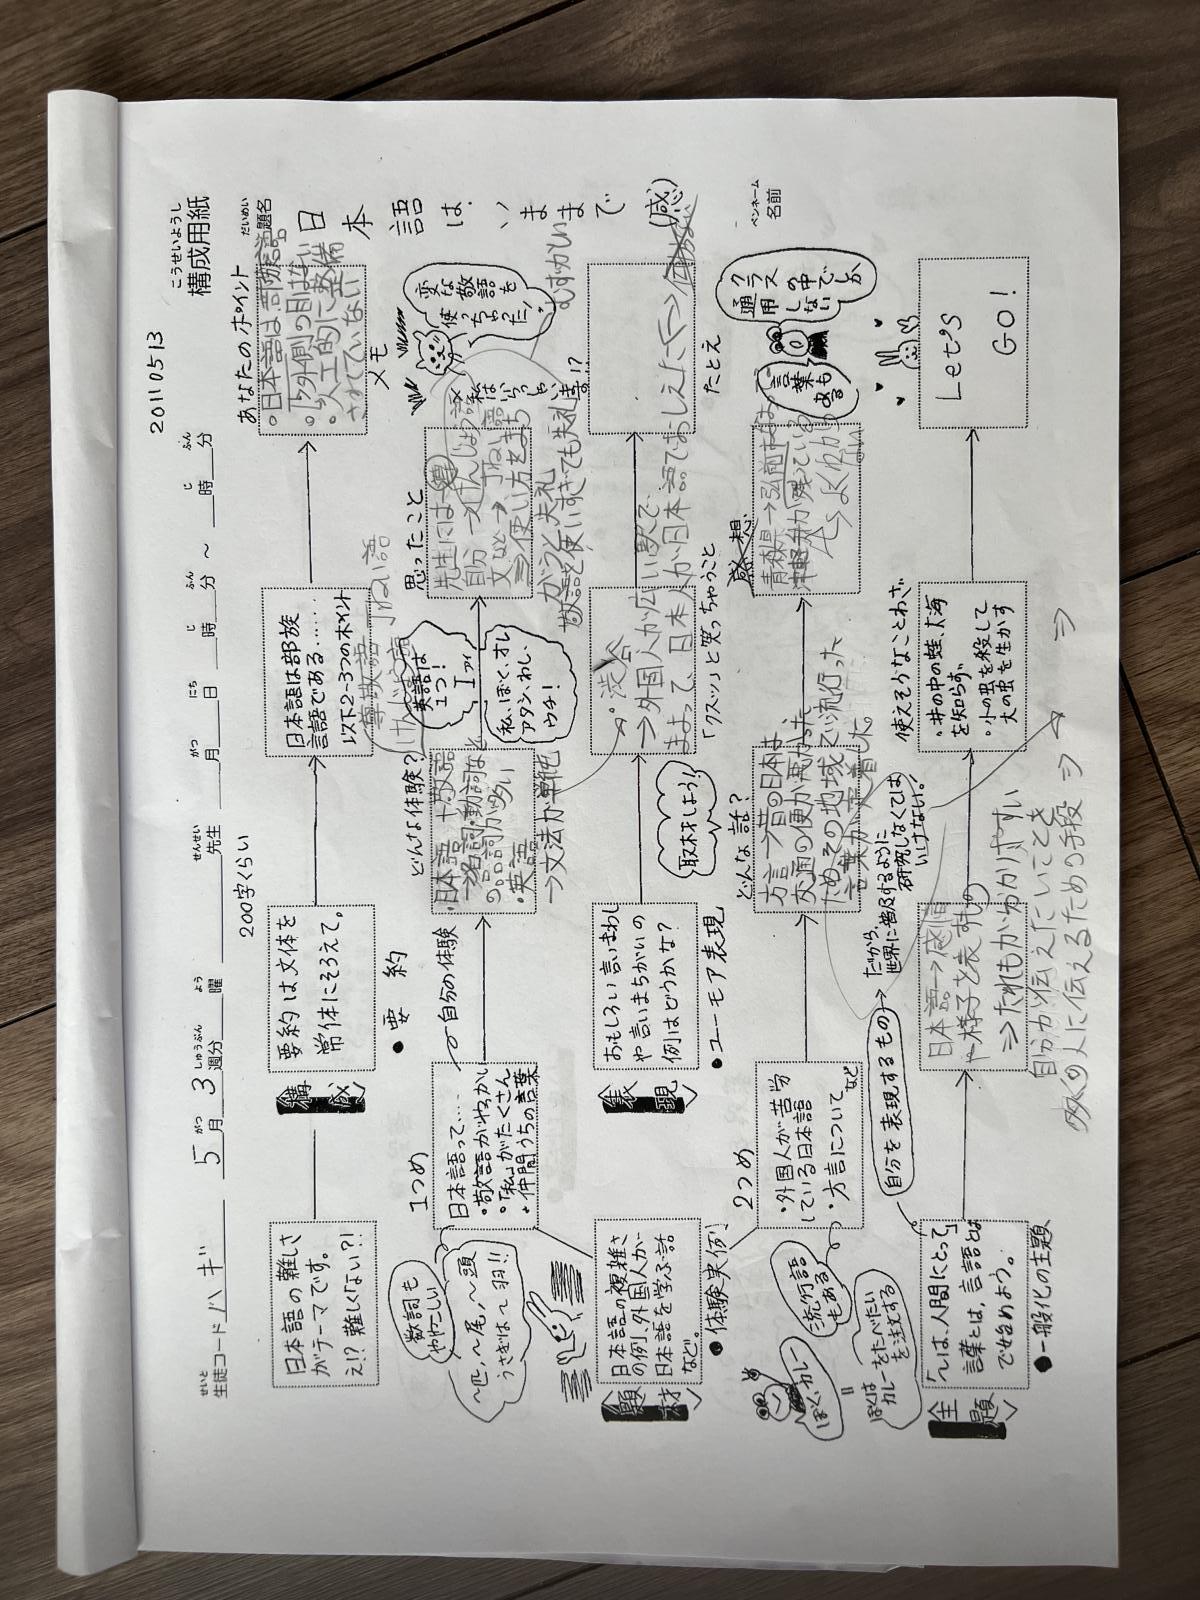 構成用紙
こうせいようし
20110513
生徒コード ハギ 5月3週分 曜 先生 月 日 時 分 〜 時 分
題名
だいめい
日本語は、いままで
ペンネーム
名前
200字くらい
あなたのポイント
日本語の難しさ
がテーマです。
え!?難しく「ない?!
<構成>
要約は文体を
常体にそろえて。
●要約
日本語は部族
言語である……
以下2-3つのポイント
・日本語は部族言語
・外側の目はない
・人工的に整備
されていない
メモ
数詞も
ややこしい
〜匹,〜尾,〜頭
うさぎは〜羽!!
1つめ
日本語って…
・敬語がやっかい
・「私」がたくさん
・仲間うちの言葉
自分の体験
どんな体験?
・日本語→敬語
→名詞・動詞など
の品詞が多い
・英語
→文法が単純
尊敬語
ていねい語
英語は
1つ!
I
私、ぼく、オレ
アタシ、わし、
ウチ!
思ったこと
先生には
自分→けんじょう語
⇒使い方をまち
がうと失礼
敬語を使いすぎても失礼
私はいらっしゃいます!?
変な敬語を
使っちゃった!
むずかしい
<題材>
日本語の複雑さ
の例、外国人が
日本語を学ぶ話
など。
●体験実例
<表現>
おもしろい言いまわし
や言いまちがいの
例はどうかな?
●ユーモア表現
取材をしよう!!
渋谷
→外国人が広い駅で
まよって、日本人が日本語でおしえた
「クスッ」と笑っちゃうこと
たとえ
2つめ
・外国人が苦労
している日本語
・方言について
など
流行語
もある
ぼく、カレー
=
ぼくは
カレーをたべたい
を注文する
どんな話?
方言→昔の日本は、
交通の便が悪かった
ためその地域で流行った
言葉が定着した。
感想
青森県→弘前市など
津軽弁が残っている
よくわからない
クラス
の中でしか
通用しない
言葉もある
<主題>
「〜は、人間にとって」
言葉とは,言語とは
で始めよう。
●一般化の主題
自分を表現するもの
だから、
世界に普及するように
研究しなくては
いけない。
日本語→感情
や様子を表すもの
⇒だれもが分かりやすい
自分が伝えたいことを
多くの人に伝えるための手段⇒
使えそうなことわざ
・井の中の蛙、大海
を知らず
・小の虫を殺して
大の虫を生かす
Let's
GO!